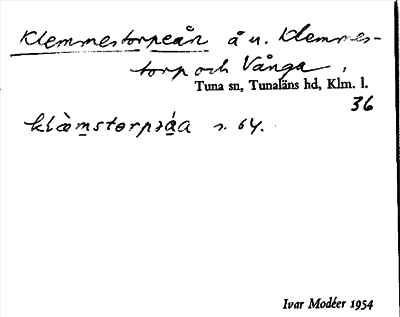 Klemmestorpeån å u. Klemmes-
torp och Vånga,
Tuna sn, Tunaläns hd, Klm. l.
36
s. 64.
Ivar Modéer 1954